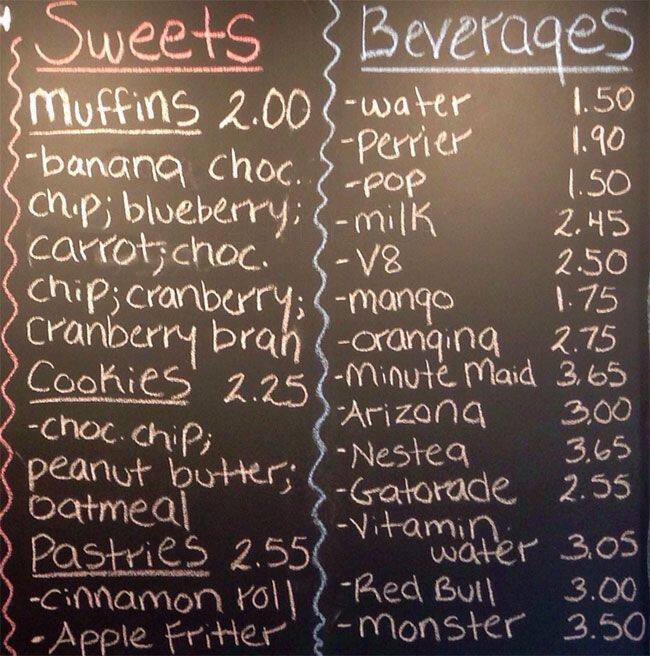 Sweets
Muffins 2.00
-banana choc.
chip; blueberry;
carrot; choc.
chip; cranberry;
cranberry bran
Cookies 2.25
-choc. chip;
peanut butter;
oatmeal
Pastries 2.55
-cinnamon roll
- Apple Fritter
Beverages
-water 1.50
-perrier 1.90
-pop 1.50
-milk 2.45
-V8 2.50
-mango 1.75
-orangina 2.75
-Minute Maid 3.65
-Arizona 3.00
-Nestea 3.65
-Gatorade 2.55
-Vitamin
water 3.05
-Red Bull 3.00
-monster 3.50